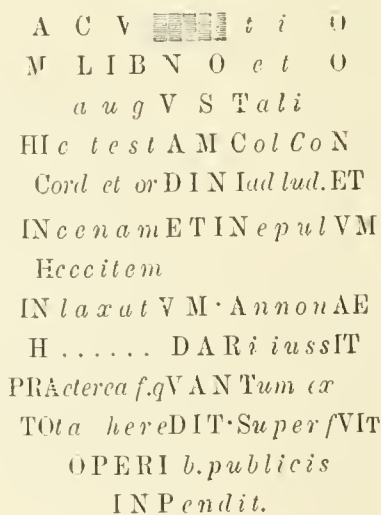 A C V t i O
M L I B N O e t O
a u g V S T a l i
HI c t e s t A M C o l C o N
Cord et or D I N I ad lud. ET
IN c e n a m E T I N e p u l V M
Hcccitem
IN l a x a t V M · A n n o n AE
H . . . . . . D A R i iuss IT
PRActerea f.qV A N T u m ex
TOta hereD I T · Super fVIT
OPERI b. publicis
I N P e n d i t.